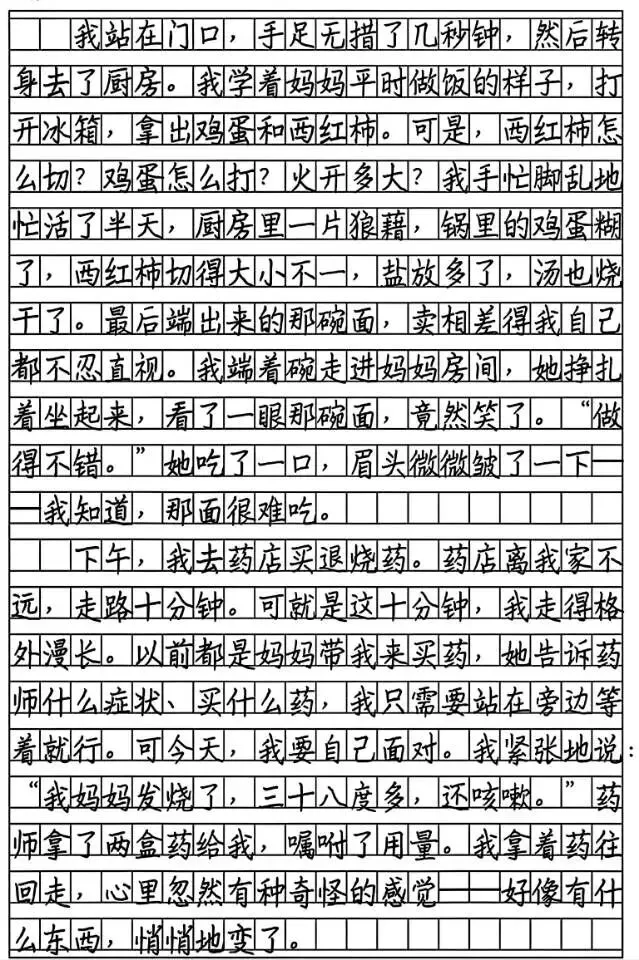 我站在门口，手足无措了几秒钟，然后转
身去了厨房。我学着妈妈平时做饭的样子，打
开冰箱，拿出鸡蛋和西红柿。可是，西红柿怎
么切？鸡蛋怎么打？火开多大？我手忙脚乱地
忙活了半天，厨房里一片狼藉，锅里的鸡蛋糊
了，西红柿切得大小不一，盐放多了，汤也烧
干了。最后端出来的那碗面，卖相差得我自己
都不忍直视。我端着碗走进妈妈房间，她挣扎
着坐起来，看了一眼那碗面，竟然笑了。“做
得不错。”她吃了一口，眉头微微皱了一下—
—我知道，那面很难吃。
下午，我去药店买退烧药。药店离我家不
远，走路十分钟。可就是这十分钟，我走得格
外漫长。以前都是妈妈带我来买药，她告诉药
师什么症状、买什么药，我只需要站在旁边等
着就行。可今天，我要自己面对。我紧张地说：
“我妈妈发烧了，三十八度多，还咳嗽。”药
师拿了两盒药给我，嘱咐了用量。我拿着药往
回走，心里忽然有种奇怪的感觉——好像有什
么东西，悄悄地变了。